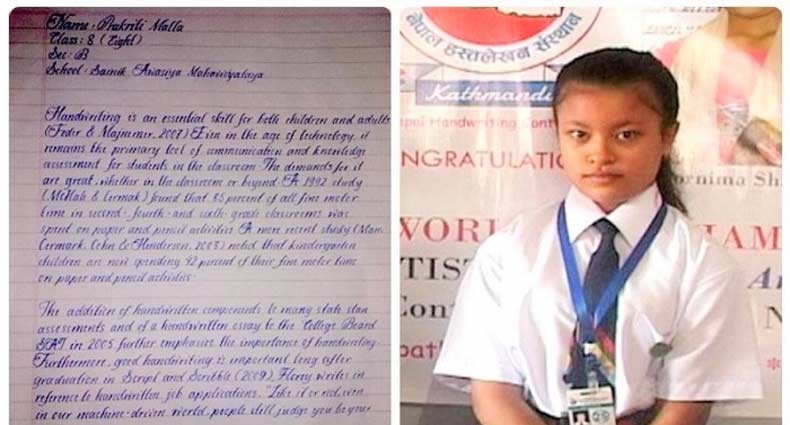 Name:- Prakriti Malla
Class: 8 (Eight)
Sec: B
School: Sainik Awasiya Mahavidyalaya
Handwriting is an essential skill for both children and adults
(Feder & Majnemer, 2007) Even in the age of technology, it
remains the primary tool of communication and knowledge
assessment for students in the classroom The demands for it
are great, whether in the classroom or beyond A 1992 study
(McHale & Cermak) found that 85 percent of all fine motor
time in second- fourth- and sixth- grade classrooms was
spent on paper and pencil activities A more recent study (Marr,
Cermark, Cohn & Henderson, 2003) noted that kindergarten
children are now spending 42 percent of their fine motor time
on paper and pencil activities.
The addition of handwritten components to many state
assessments and of a handwritten essay to the College Board
SAT in 2005 further emphasize the importance of handwriting
Furthermore, good handwriting is important long after
graduation in Script and Scribble (2009), Florey writes in
reference to handwritten job applications, "Like it or not, even
in our machine-driven world, people still judge you by your
नेपाल हस्तलेखन संस्थान
Kathmandu
pal Handwriting Cont
NGRATULATIO
ornima Sh
WORL
AM
TIST
A
Con
N
pat